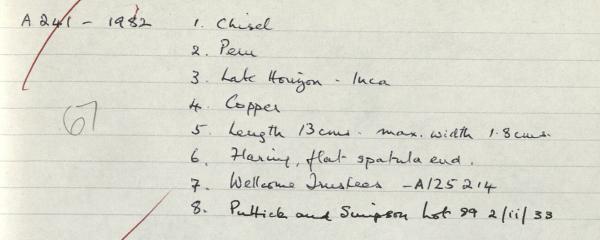 A 241 - 1982 1. Chisel
2. Peru
3. Late Horizon - Inca
4. Copper
67
5. Length 13 cms. max. width 1.8 cms.
6. Flaring, flat spatula end.
7. Wellcome Trustees - A125214
8. Puttick and Simpson Lot 99 2/11/33